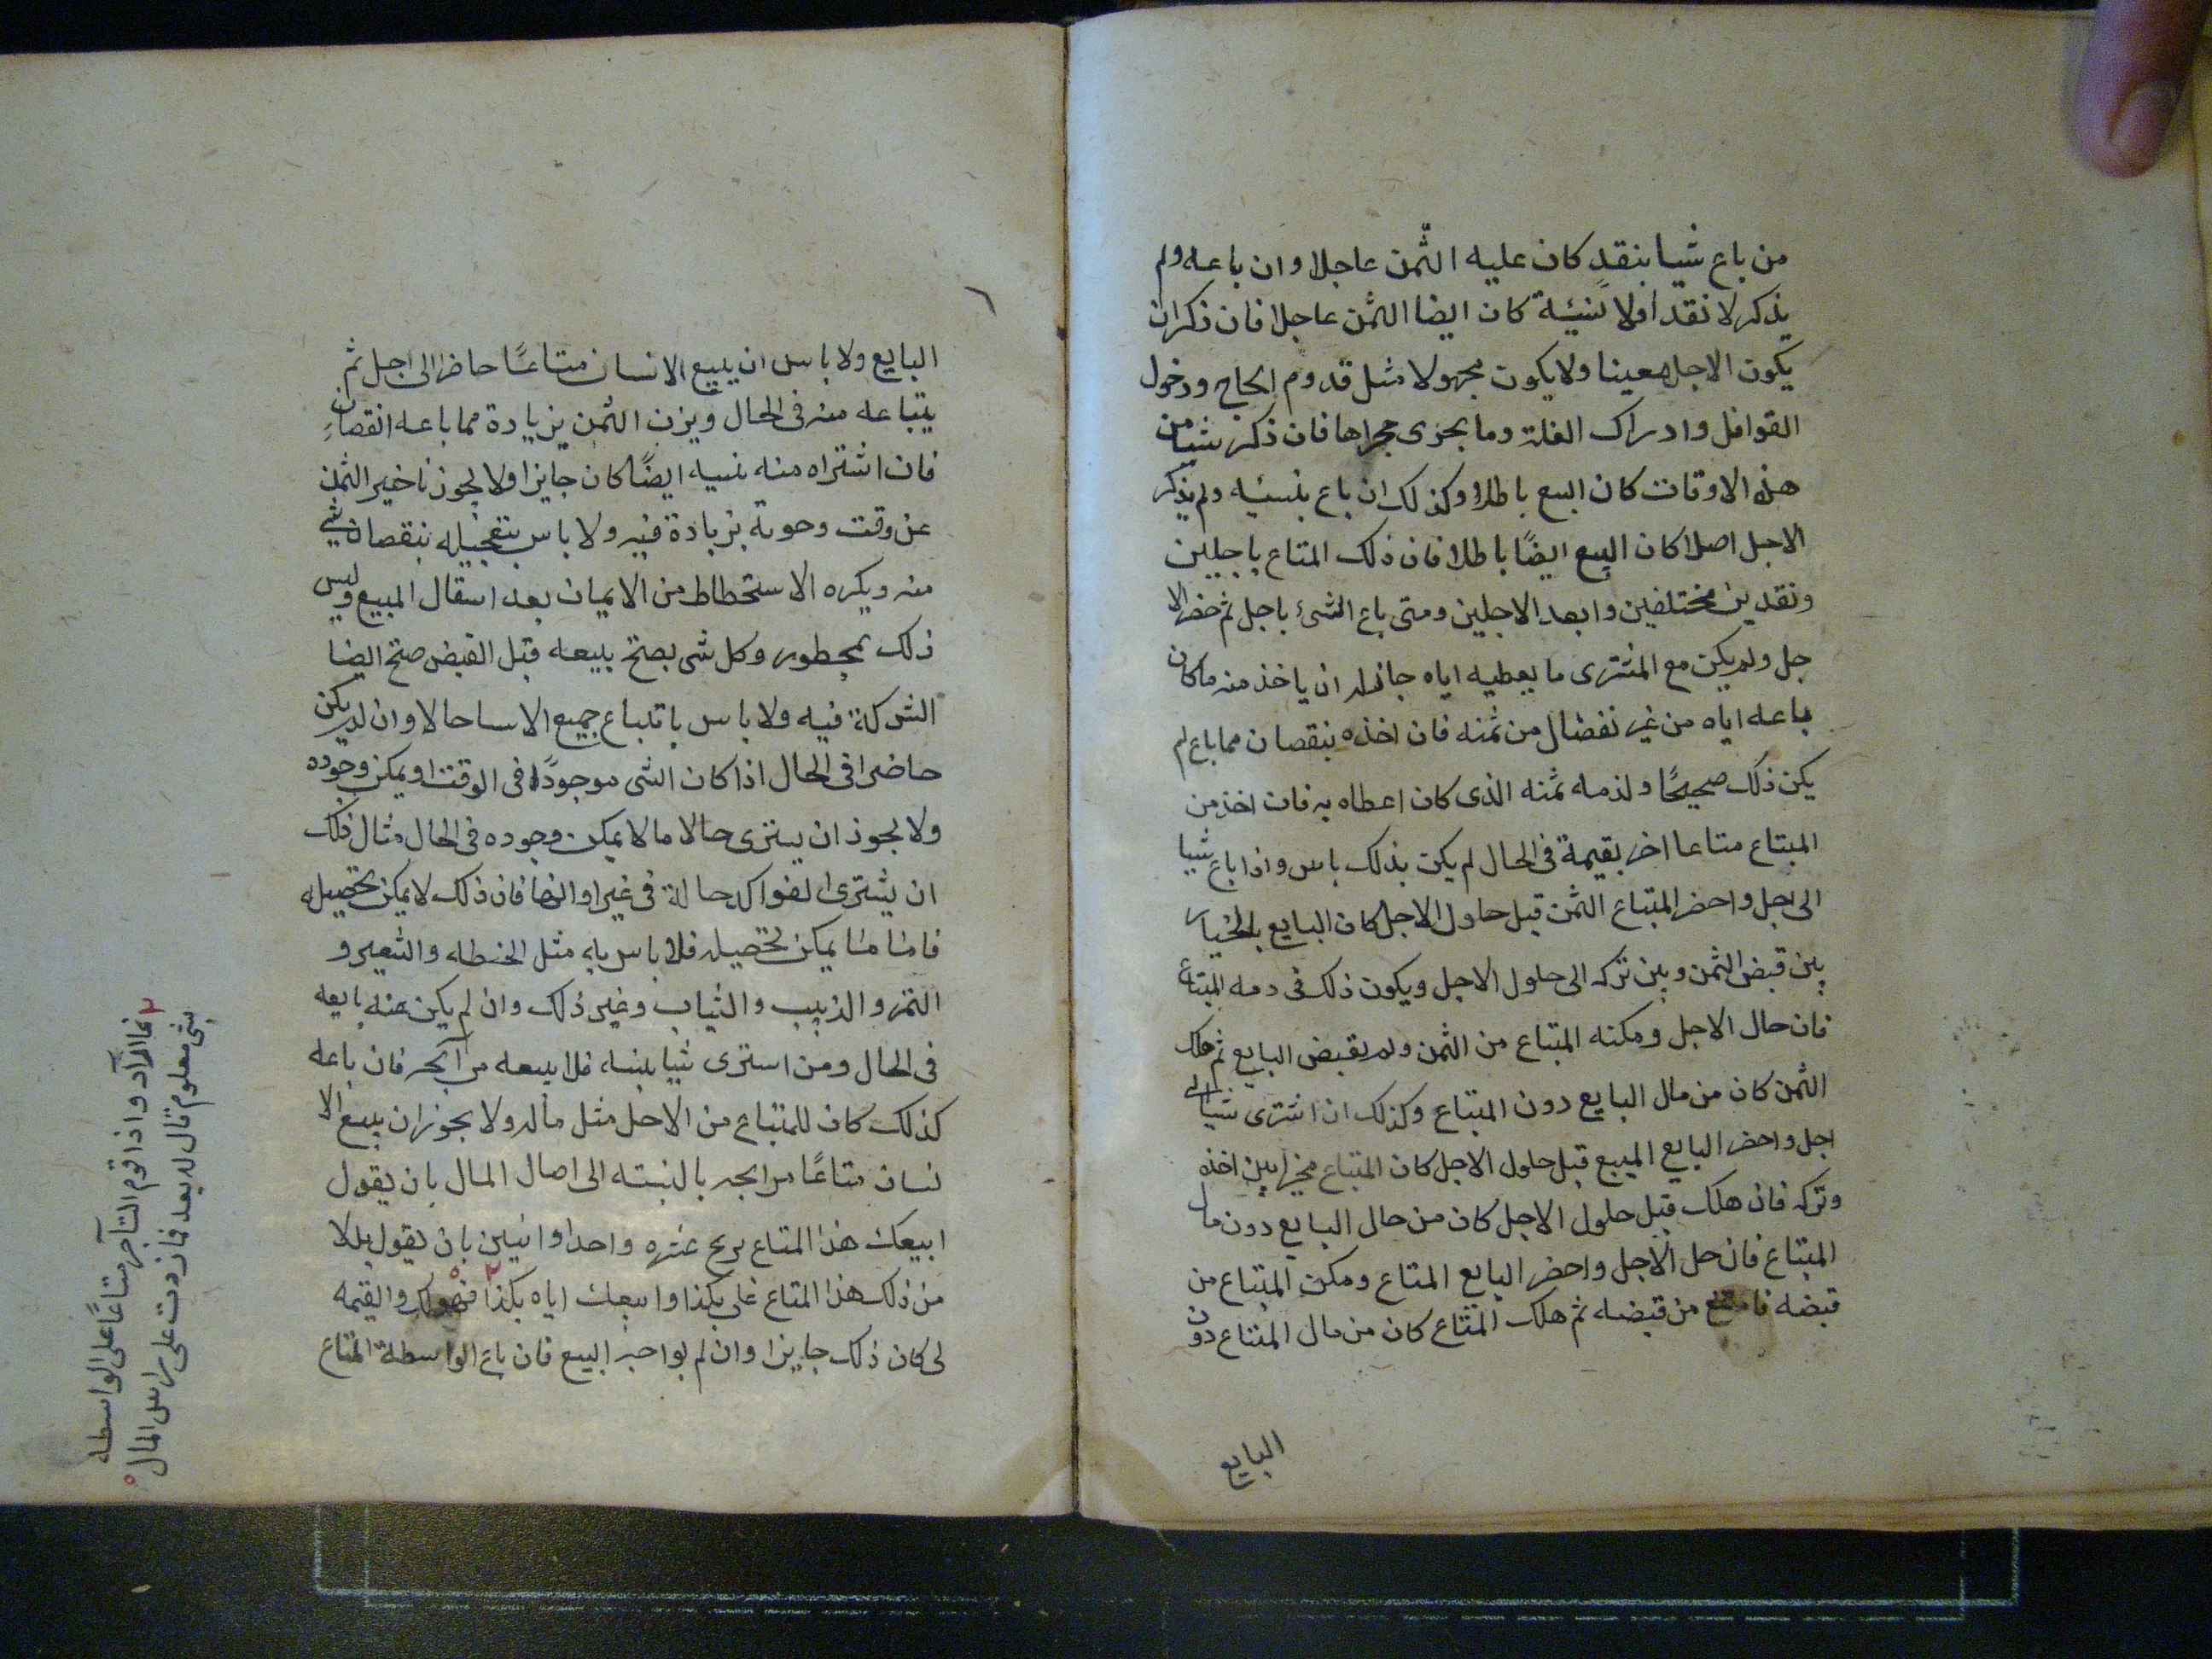 من باع شيا بنقد كان عليه الثّمن عاجلا وان باعه ولم
يذكر لا نقدا ولا نسئية كان ايضا الثمن عاجلا فان ذكر ان
يكون الاجل معينا ولا يكون مجهولا مثل قدوم الحاج ودخول
القوافل وادراك الغلة وما يجرى مجراها فان ذكر شيا من
هذه الاوقات كان البيع باطلا وكذلك ان باع بنسئيه ولم يذكر
الاجل اصلا كان البيع ايضًا باطلا فان ذلك المتاع باجلين
ونقدين مختلفين وابعد الاجلين ومتى باع الشئ باجل ثم حضر الا
جل ولم يكن مع المشترى ما يعطيه اياه جاز له ان ياخذ منه ما كان
باعه اياه من غير نفضال من ثمنه فان اخذه بنقصان مما باع لم
يكن ذلك صحيحًا ولزمه ثمنه الذى كان اعطاه به فان اخذ من
المبتاع متاعا اخر بقيمة فى الحال لم يكن بذلك باس واذا باع شيا
الى اجل واحضر المبتاع الثمن قبل حلول الاجل كان البايع بالخيار
بين قبض الثمن وبين تركه الى حلول الاجل ويكون ذلك فى دمه المبتاع
فان حال الاجل ومكنه المبتاع من الثمن ولم يقبض البايع ثم هلك
الثمن كان من مال البايع دون المبتاع وكذلك ان اشترى شيا الى
اجل واحضر البايع المبيع قبل حلول الاجل كان المبتاع مخيرا بين اخذه
وتركه فان هلك قبل حلول الاجل كان من حال البايع دون مال
المبتاع فان حل الاجل واحضر البايع المتاع ومكن المبتاع من
قبضه فامتنع من قبضه ثم هلك المتاع كان من مال المبتاع دون
البايع
البايع ولا باس ان يبيع الانسان متاعًا حاضرا الى اجل ثم
يتباعه منه فى الحال ويزن الثمن بزيادة مما باعه انقصان
فان اشتراه منه بنسيه ايضًا كان جايزا ولا يجوز تاخير الثمن
عن وقت وجوبه بزيادة فيه ولا باس بتعجيله بنقصان شئ
منه ويكره الاستحطاط من الايمان بعد انتقال المبيع وليس
ذلك بمحظور وكل شى يصح بيعه قبل القبض صح ايضا
الشركة فيه ولا باس باتباع جميع الاسا حالا وان لم يكن
حاضرا فى الحال اذا كان الشى موجودًا فى الوقت او يمكن وجوده
ولا يجوز ان يشترى حالا ما لا يمكن وجوده فى الحال مثال ذلك
ان يشترى الفواكه حالة فى غير اوانها فان ذلك لا يمكن تحصيله
فاما ما يمكن تحصيله فلا باس به مثل الحنطه والشعير و
التمر والزبيب والثياب وغير ذلك وان لم يكن عنه بايعه
فى الحال ومن اشترى شيا بنسه فلا يبيعه مرابحه فان باعه
كذلك كان للمتباع من الاجل مثل ماله ولا يجوز ان يبيع الا
نسان متاعًا مرابحه بالنسته الى اصال المال بان يقول
ابيعك هذا المتاع بربح عشره واحدا واثنين بان يقول بللا
من ذلك هذا المتاع على بكذا وابيعك اياه بكذا والقيمه
لى كان ذلك جايزا وان لم يواجبه البيع فان باع الواسطة المتاع
واذا قوم التاجر متاعًا على الواسطه
بشى معلوم قال له بعه فان زدت على راس المال